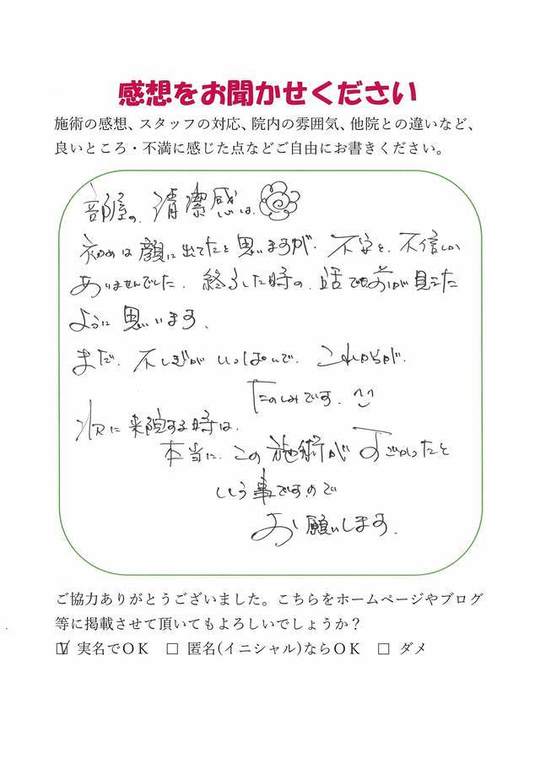 感想をお聞かせください
施術の感想、スタッフの対応、院内の雰囲気、他院との違いなど、
良いところ・不満に感じた点などご自由にお書きください。
部屋の、清潔感は、
初めは顔に出てたと思いますが、不安と、不信しか
ありませんでした。終了した時の、話でも前が見えた
ように思います、
まだ、不しぎがいっぱいで、これからが、
たのしみです。
次に来院する時は、
本当に、この施術がすごかったと
いう事ですので
お願いします。
ご協力ありがとうございました。こちらをホームページやブログ
等に掲載させて頂いてもよろしいでしょうか？
☑ 実名でＯＫ □ 匿名(イニシャル)ならＯＫ □ ダメ